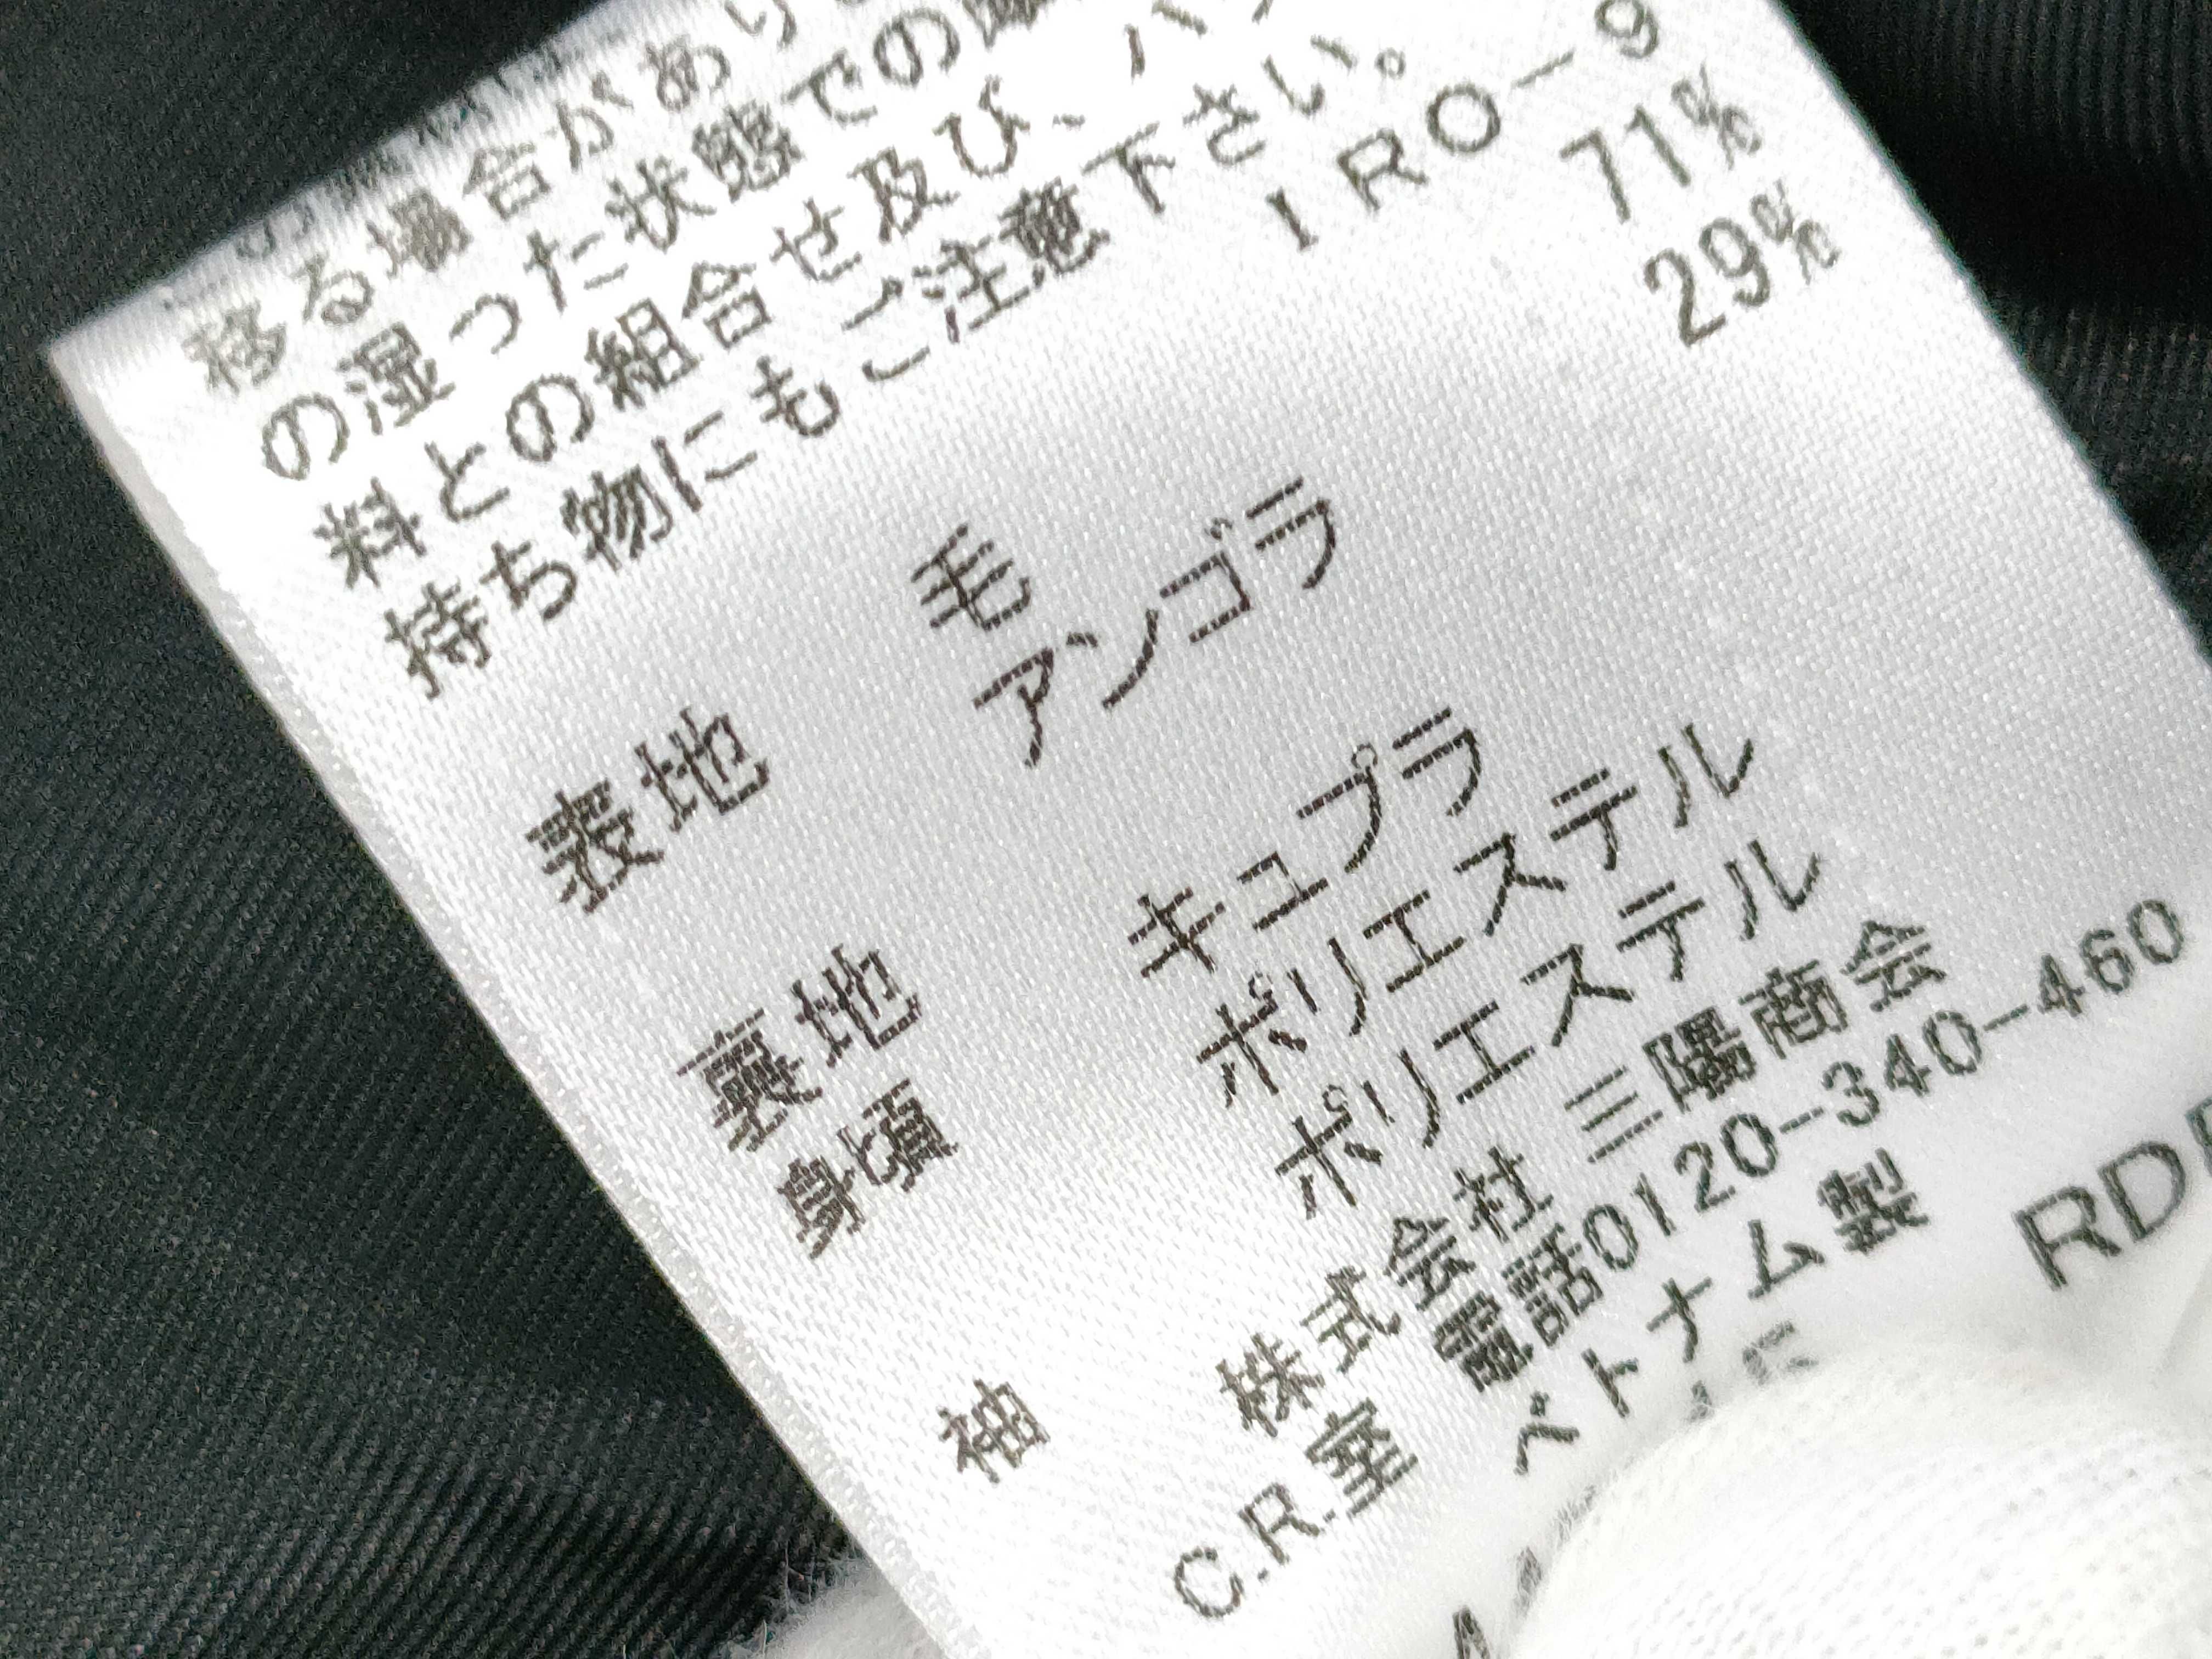 移る場合があり
の湿った状態での
料との組合せ及び、バ
持ち物にもご注意下さい。
IRO-9
表地 毛 71%
アンゴラ 29%
裏地
身頃 キュプラ
ポリエステル
袖 ポリエステル
株式会社 三陽商会
C.R.室 電話0120-340-460
ベトナム製